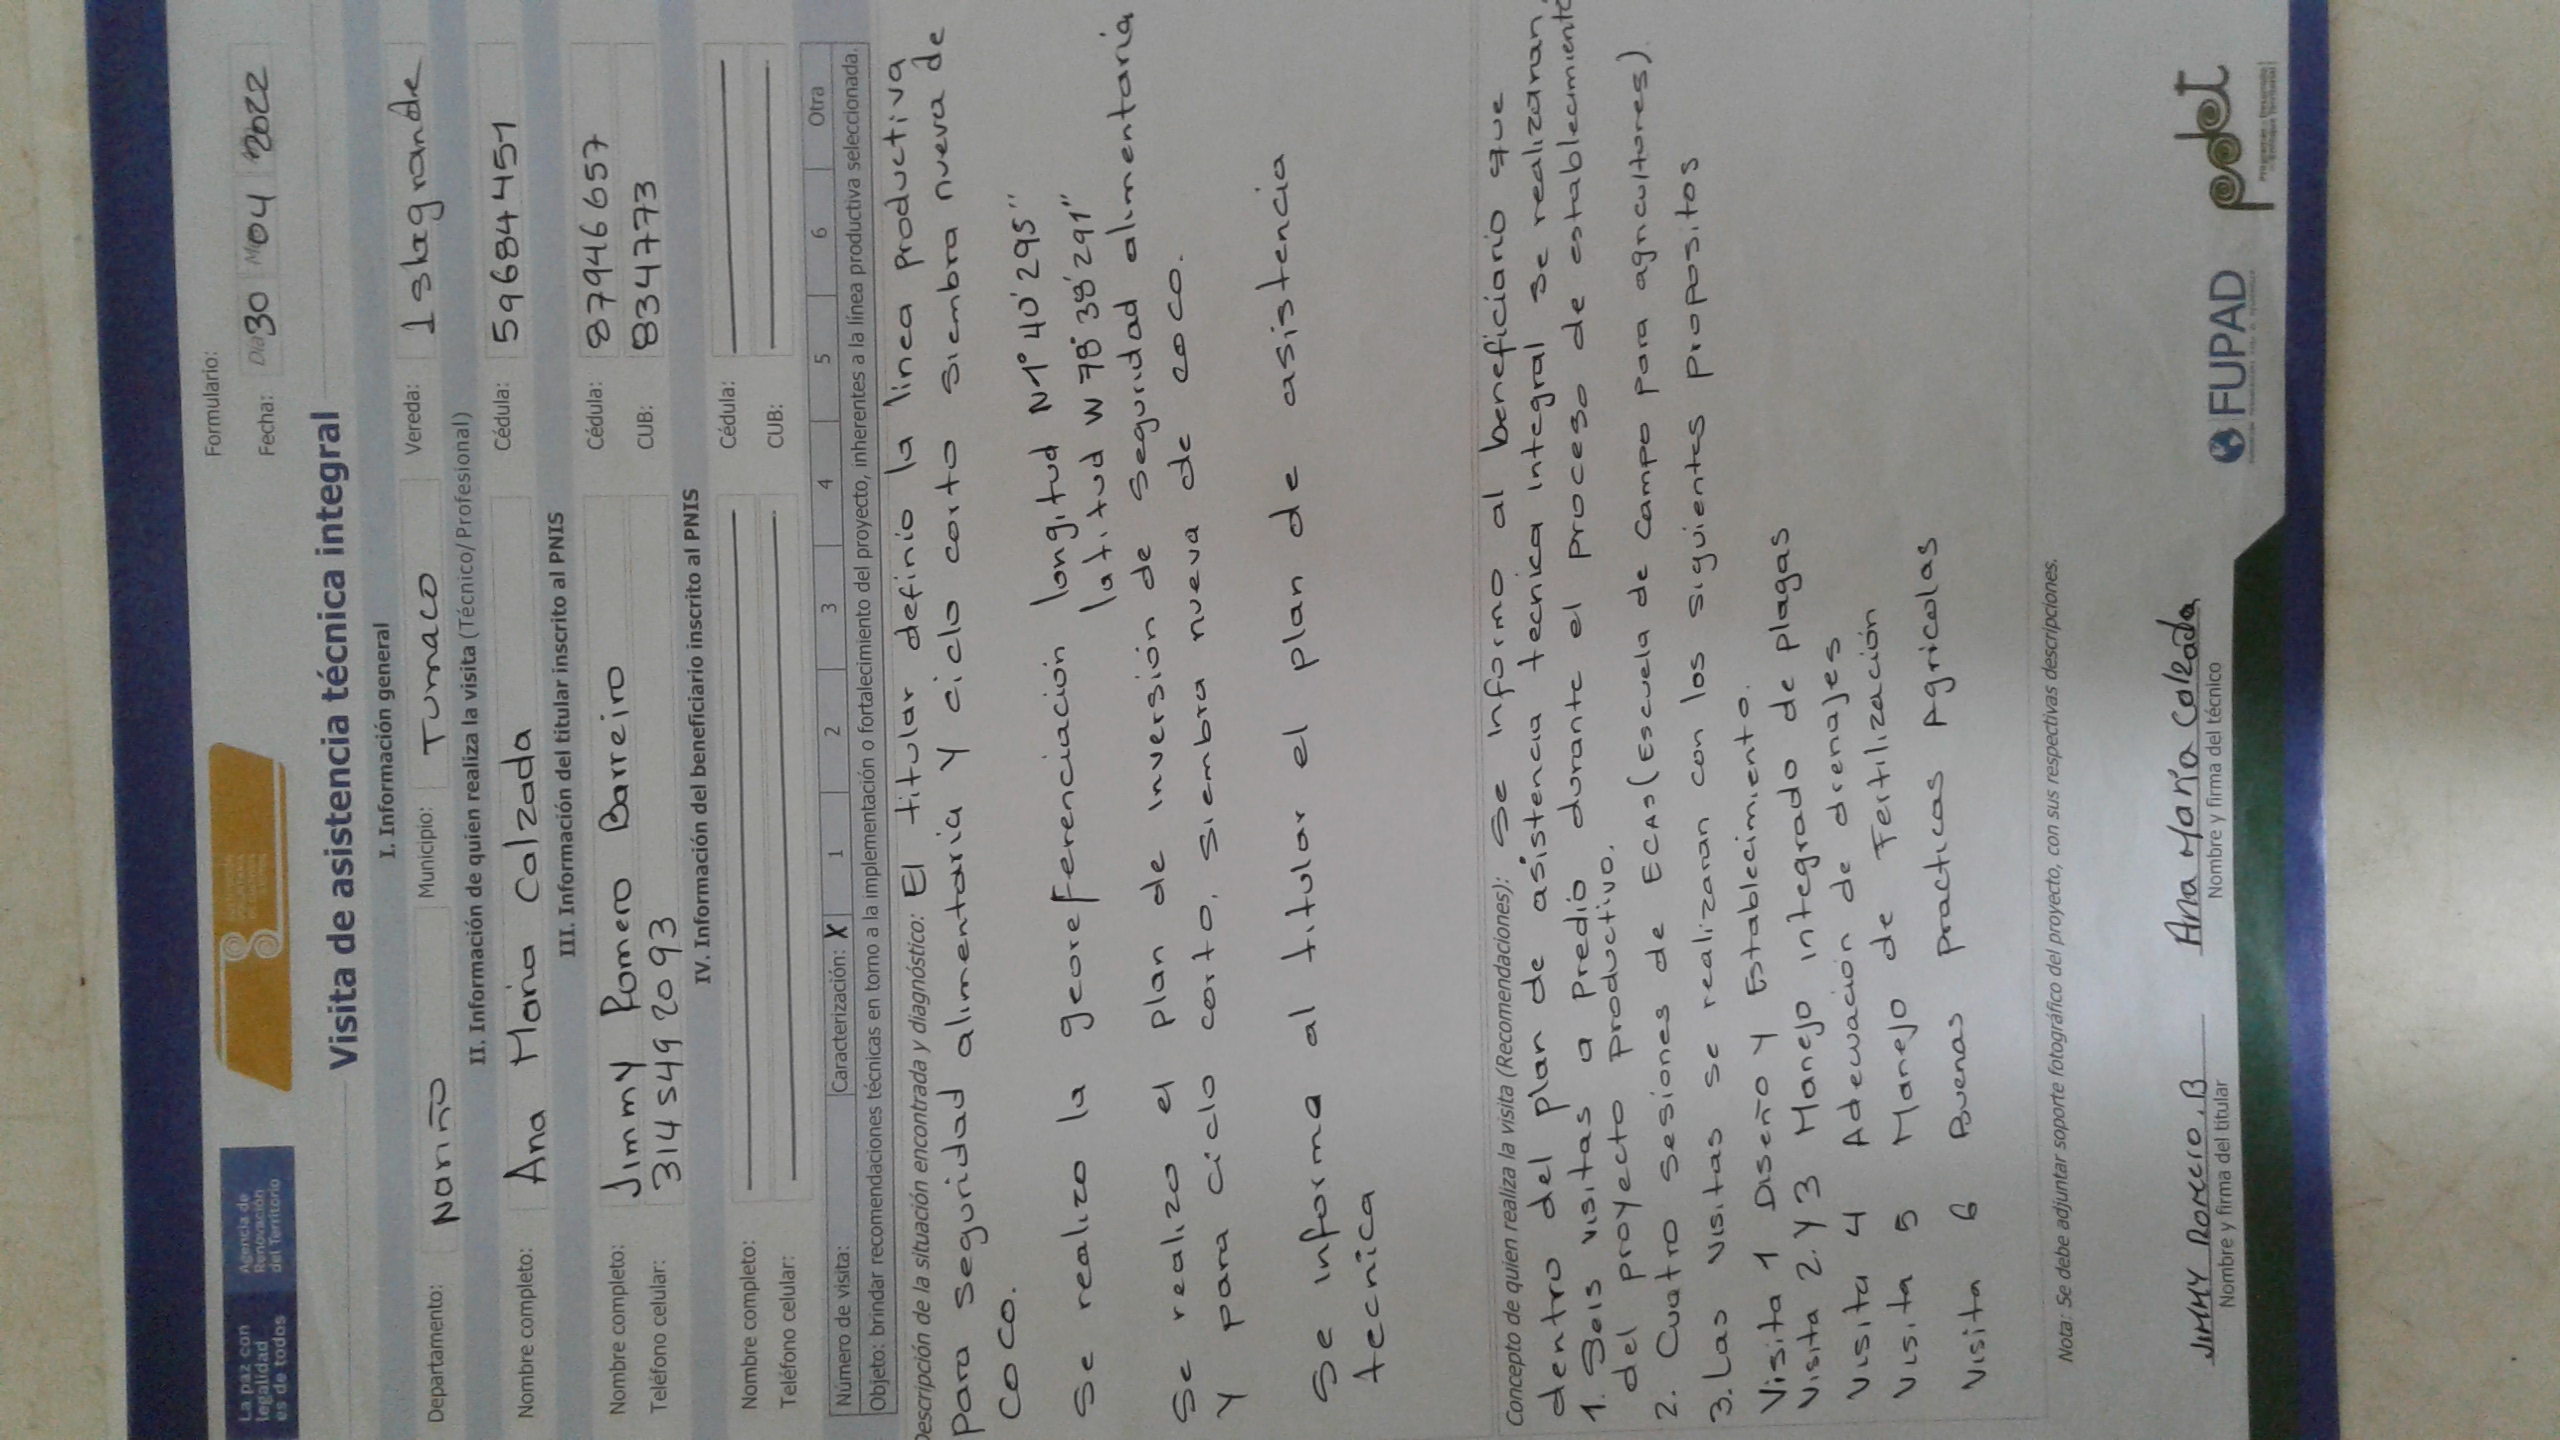 La paz con
legalidad
es de todos
Agencia de
Renovación
del Territorio
Formulario:
Fecha: Día 30 M 04 2022
Visita de asistencia técnica integral
I. Información general
Departamento: Nariño Municipio: Tumaco Vereda: Islagrande
II. Información de quien realiza la visita (Técnico/Profesional)
Nombre completo: Ana Maria Calzada Cédula: 59684451
III. Información del titular inscrito al PNIS
Nombre completo: Jimmy Romero Barreiro Cédula: 87946657
Teléfono celular: 3145492093 CUB: 834773
IV. Información del beneficiario inscrito al PNIS
Nombre completo: Cédula:
Teléfono celular: CUB:
Número de visita: Caracterización: X 1 2 3 4 5 6 Otra
Objeto: brindar recomendaciones técnicas en torno a la implementación o fortalecimiento del proyecto, inherentes a la línea productiva seleccionada.
Descripción de la situación encontrada y diagnóstico: El titular definio la linea productiva
para seguridad alimentaria y ciclo corto siembra nueva de
coco.
Se realizo la georeferenciación longitud N1° 40' 295"
latitud W 78° 38' 291"
Se realizo el plan de inversión de seguridad alimentaria
y para ciclo corto, siembra nueva de coco.
Se informa al titular el plan de asistencia
tecnica
Concepto de quien realiza la visita (Recomendaciones): Se informo al beneficiario que
dentro del plan de asistencia tecnica integral se realizaran,
1. Seis visitas a predio durante el proceso de establecimiento
del proyecto productivo.
2. Cuatro sesiones de ECAS (Escuela de Campo para agricultores).
3. Las visitas se realizaran con los siguientes propositos
Visita 1 Diseño y Establecimiento.
Visita 2 y 3 Manejo integrado de plagas
Visita 4 Adecuación de drenajes
Visita 5 Manejo de Fertilización
Visita 6 Buenas practicas Agricolas
Nota: Se debe adjuntar soporte fotográfico del proyecto, con sus respectivas descripciones.
JIMMY Romero. B Ana María Calzada
Nombre y firma del titular Nombre y firma del técnico
FUPAD
pdet